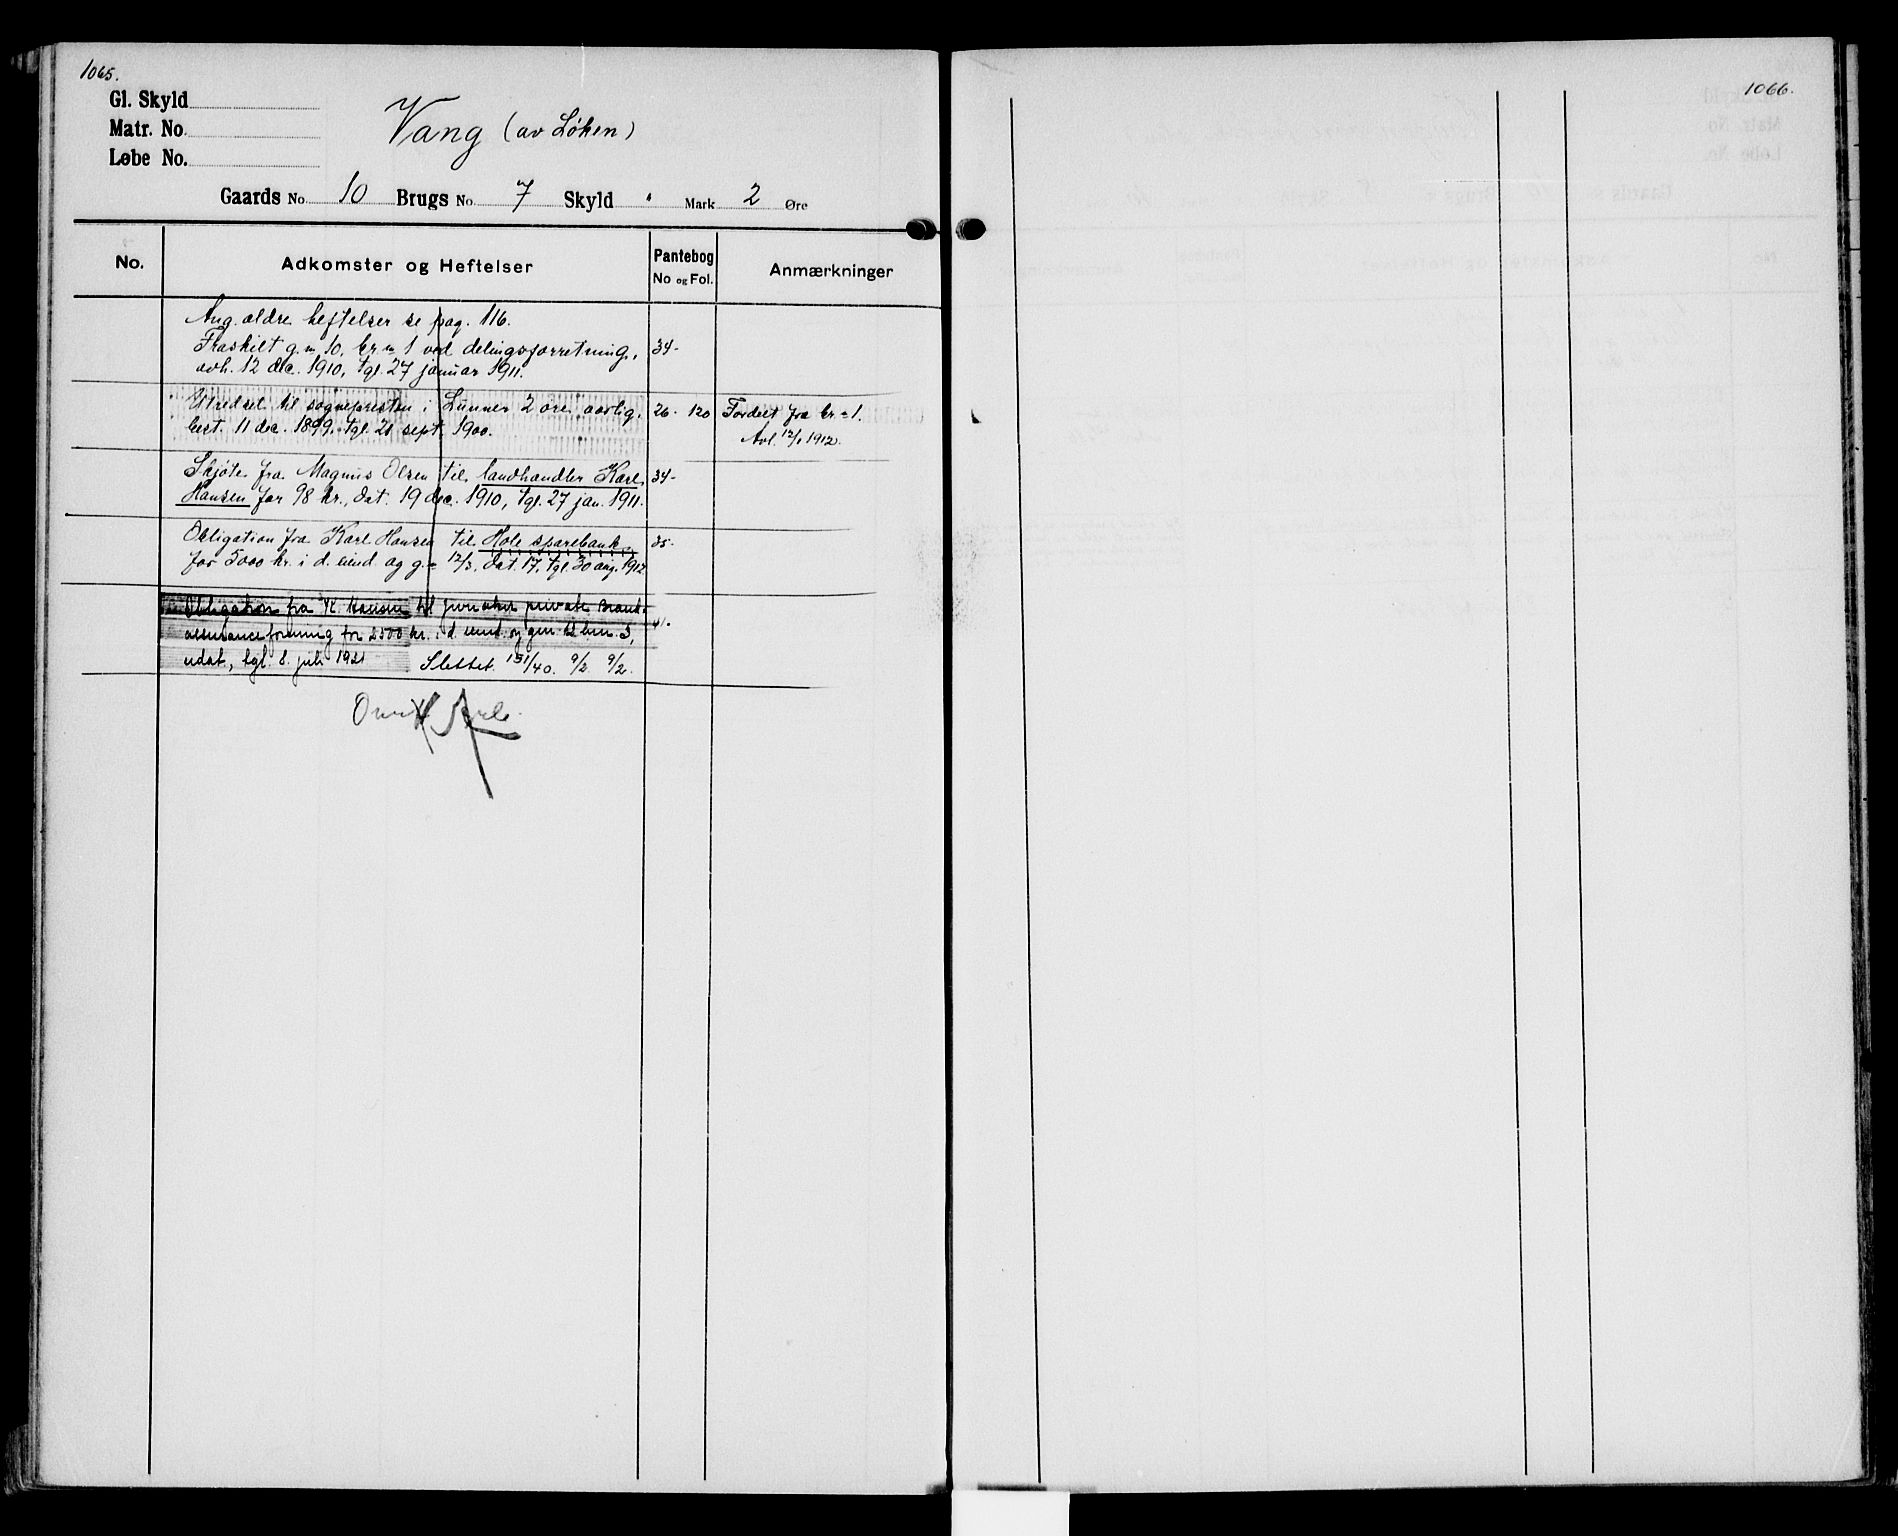 1065.
Gl. Skyld
Matr. No.
Løbe No.
Vang (av Løken)
Gaards No. 10 Brugs No. 7 Skyld " Mark 2 Øre
No. Adkomster og Heftelser Pantebog No og Fol. Anmærkninger
Ang. ældre heftelser se pag. 116.
Fraskilt g. no 10, br. no 1 ved delingsforretning, 34-
avh. 12 dec. 1910, tgl. 27 januar 1911.
Utredsel til sognepresten i Lunner 2 øre aarlig, 26. 120 Fordelt fra br. no 1.
best. 11 dec. 1899, tgl. 21 sept. 1900. Avl. 12/1 1912.
Skjøte fra Magnus Olsen til landhandler Karl 34-
Hansen for 98 kr., dat. 19 dec. 1910, tgl. 27 jan. 1911.
Obligation fra Karl Hansen til Hole sparebank 35-
for 5000 kr. i d. eiend. og g. no 12/3, dat. 17, tgl. 30 aug. 1912
Obligation fra K. Hansen til Jevnaker private Brand-
assuranceforening for 2500 kr. i d. eiend. og gnr. 12 brn. 3, 41.
udat., tgl. 8. juli 1921 Slettet 131/40. 9/2 9/2.
1066.